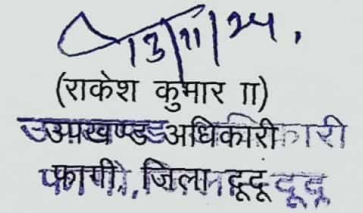 13/11/24.
(राकेश कुमार II)
उपखण्ड अधिकारी
फागी, जिला दूदू